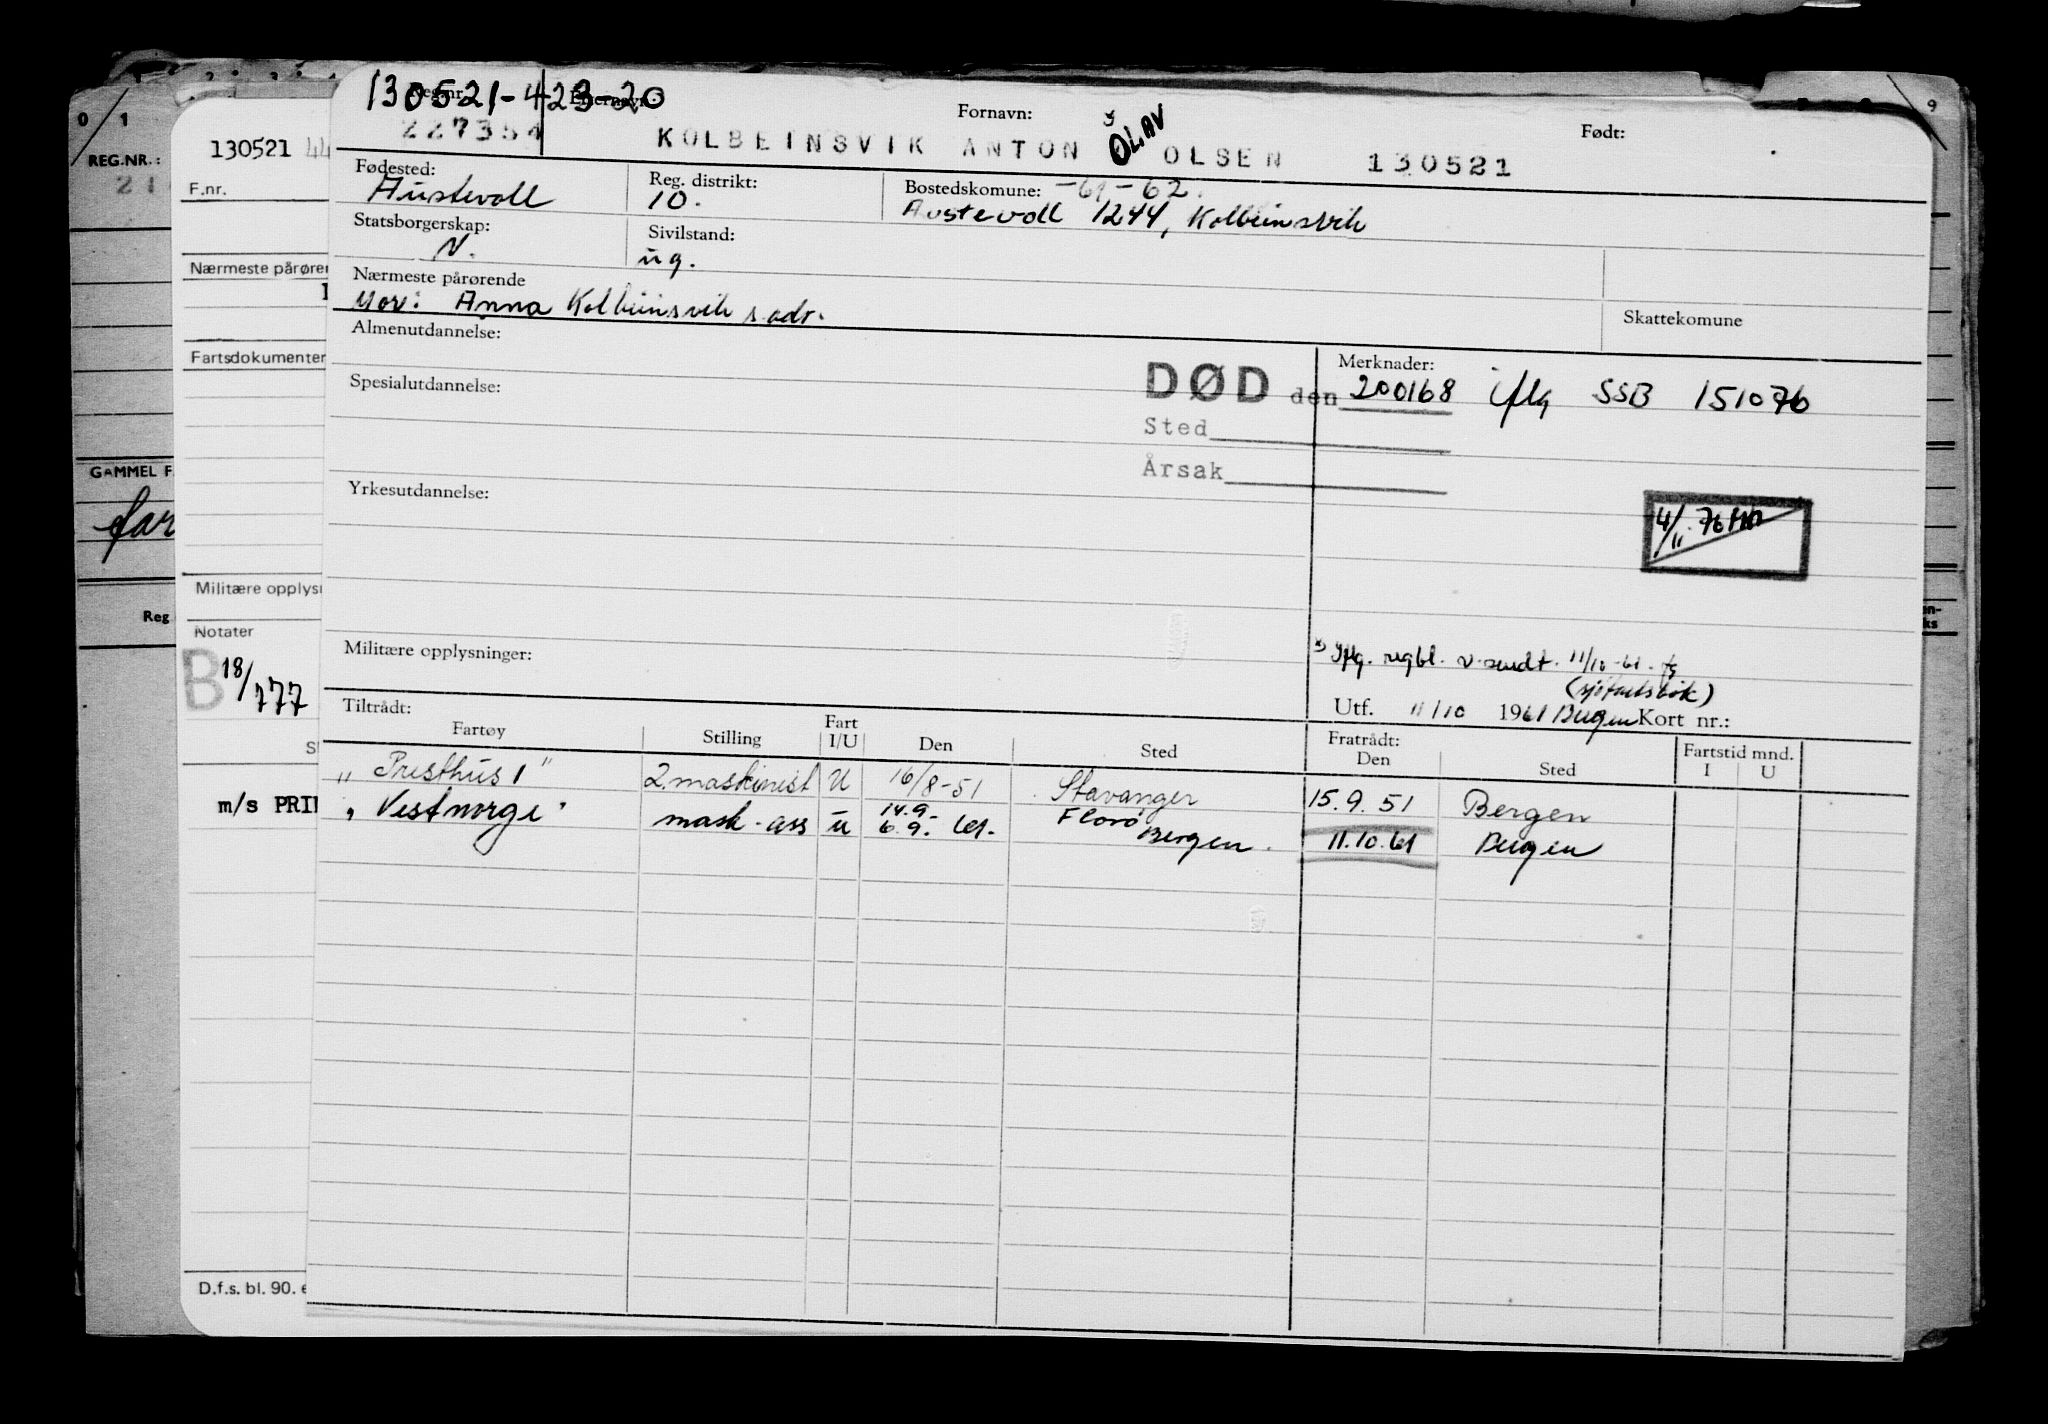 130521-423-20
Reg.nr. Etternavn: Fornavn: Født:
227354 KOLBEINSVIK ANTON x) OLAV OLSEN 130521
Fødested: Reg. distrikt: Bostedskomune: -61-62.
Austevoll 10. Austevoll 1244, Kolbeinsvik
Statsborgerskap: Sivilstand:
N. ug.
Nærmeste pårørende
Mor: Anna Kolbeinsvik s. adr. Skattekomune
Almenutdannelse: Merknader:
DØD den 200168 iflg SSB 151076
Spesialutdannelse:
Sted
Årsak
Yrkesutdannelse:
4/11 76
Militære opplysninger:
x) Iflg. regbl. v. sendt. 11/10-61.
(sjøfartsbok)
Utf. 11/10 1961 Bergen Kort nr.:
Tiltrådt: Fratrådt: Fartstid mnd.
Fartøy Stilling Fart I/U Den Sted Den Sted I U
"Presthus 1" 2. maskinist U 16/8-51 Stavanger 15.9.51 Bergen
"Vestnorge" mask-ass u 14.9. Florø
6.9. 61. Bergen. 11.10.61 Bergen
0 1
REG.NR.:
GAMMEL F
Reg
130521 44
F.nr.
Nærmeste pårøre
Fartsdokumenter
Militære opplys
Notater
B 18/1 77
m/s PRI
D.f.s. bl. 90.
9